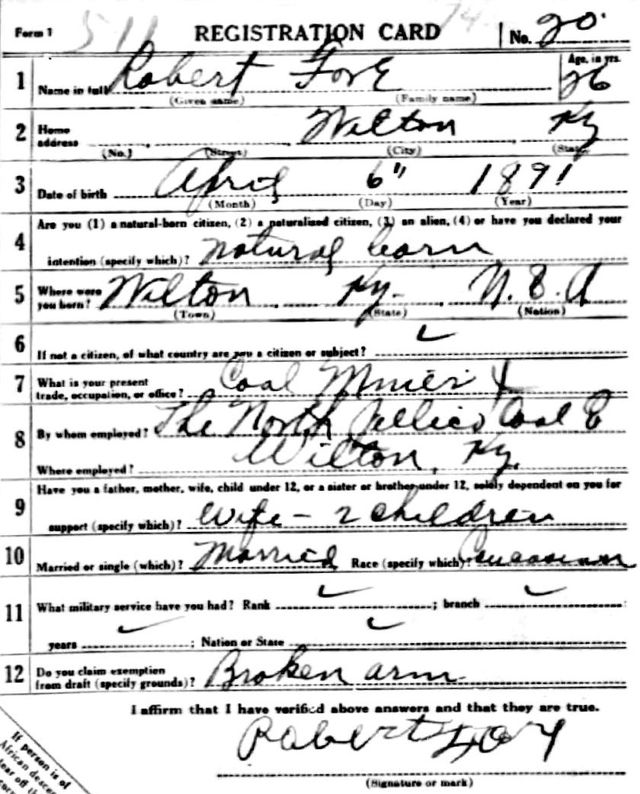 Form 1 511 REGISTRATION CARD No. 20
1 Name in full Robert (Given name) (Family name) Age, in yrs. 26
2 Home address (No.) (Street) Wilton (City) Ky (State)
3 Date of birth April (Month) 6" (Day) 1891 (Year)
Are you (1) a natural-born citizen, (2) a naturalized citizen, (3) an alien, (4) or have you declared your
4 intention (specify which)? natural born
5 Where were you born? Wilton (Town) Ky. (State) (Nation)
6 If not a citizen, of what country are you a citizen or subject?
7 What is your present trade, occupation, or office? Coal Miner
8 By whom employed? The North Jellico Coal
Where employed? Wilton, Ky.
9 Have you a father, mother, wife, child under 12, or a sister or brother under 12, solely dependent on you for
support (specify which)? wife - 2 children
10 Married or single (which)? Married Race (specify which)? Caucasian
11 What military service have you had? Rank ; branch
years ; Nation or State
12 Do you claim exemption from draft (specify grounds)? Broken arm
I affirm that I have verified above answers and that they are true.
Robert
(Signature or mark)
If person is of
African
tear off